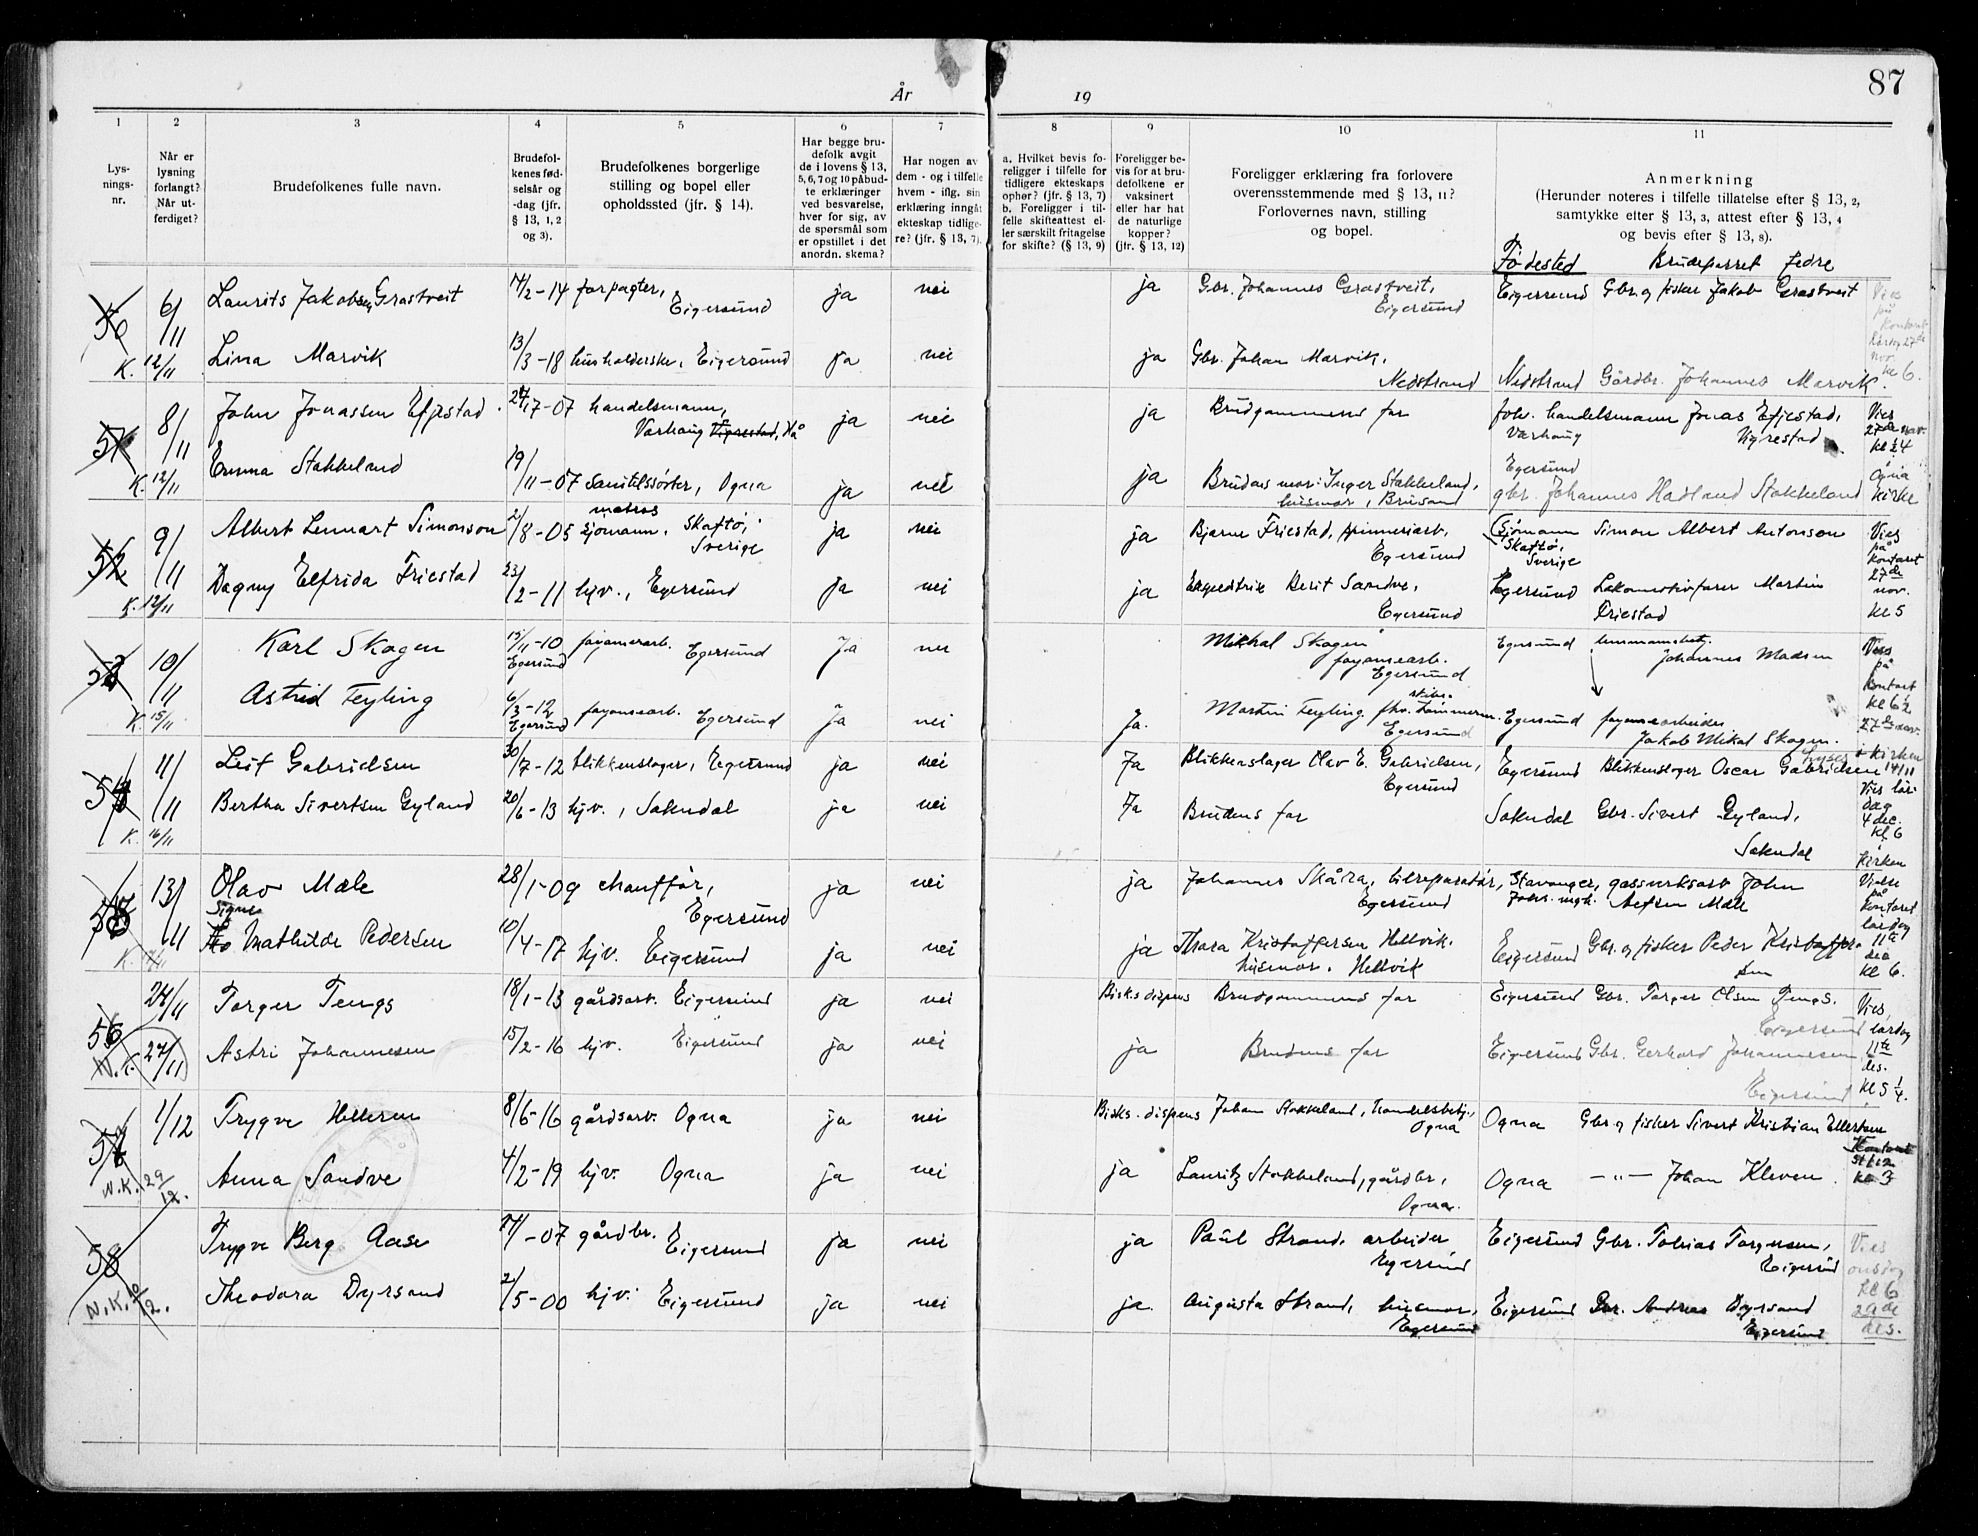 87
År 19
1 2 3 4 5 6 7 8 9 10 11
Lys-
nings-
nr.
Når er
lysning
forlangt?
Når ut-
ferdiget?
Brudefolkenes fulle navn.
Brudefol-
kenes fød-
selsår og
-dag (jfr.
§ 13, 1, 2
og 3).
Brudefolkenes borgerlige
stilling og bopel eller
opholdssted (jfr. § 14).
Har begge bru-
defolk avgit
de i lovens § 13,
5, 6, 7 og 10 påbud-
te erklæringer
ved besvarelse,
hver for sig, av
de spørsmål som
er opstillet i det
anordn. skema?
Har nogen av
dem - og i tilfelle
hvem - iflg. sin
erklæring inngåt
ekteskap tidlige-
re? (jfr. § 13, 7).
a. Hvilket bevis fo-
religger i tilfelle for
tidligere ekteskaps
ophør? (jfr. § 13, 7)
b. Foreligger i til-
felle skifteattest el-
ler særskilt fritagelse
for skifte? (§ 13, 9)
Foreligger be-
vis for at bru-
defolkene er
vaksinert
eller har hat
de naturlige
kopper?
(jfr. § 13, 12)
Foreligger erklæring fra forlovere
overensstemmende med § 13, 11?
Forlovernes navn, stilling
og bopel.
Anmerkning
(Herunder noteres i tilfelle tillatelse efter § 13, 2,
samtykke efter § 13, 3, attest efter § 13, 4
og bevis efter § 13, 8).
Fødested Brudeparret fedre
50 6/11 Laurits Jakobsen Grastveit 14 forpagter, Eigersund ja nei ja Gbr. Johannes Grastveit, Eigersund Eigersund Gbr. og fisker Jakob Grastveit
K. 12/11 Lina Marvik 13/3-18 husholderske, Eigersund ja nei ja Gbr. Johan Marvik, Nedstrand Nedstrand Gårdbr. Johannes Marvik.
Vies på kontoret lørdag 27de nov. kl 6.
51 8/11 John Jonassen Efjestad 07 handelsmann, Varhaug Vigrestad, Hå ja nei ja Brudgommens far fohv. handelsmann Jonas Efjestad, Varhaug Vigrestad
K. 12/11 Emma Stokkeland 19/11-07 Ogna ja nei ja Brudens mor: Inger Stokkeland, husmor, Brusand Egersund gbr. Johannes Hadland Stokkeland
Vies 27de nov. Ogna kirke
52 9/11 Albert Lennart Simonson 2/8-05 matros sjømann. Skaftö, Sverige ja nei ja Bjarne Friestad, Egersund Sjömann Simon Albert Antonson Skaftö, Sverige
K. 12/11 Dagny Elfrida Friestad 23/2-11 hjv., Egersund ja nei ja Berit Sandve, Egersund Egersund Lokomotivfører Martin Friestad
Vies på kontoret 27de nov. kl 5
53 10/11 Karl Skogen 15/11-10 Egersund fayansearb. Egersund Ja nei Mikkal Skogen fayansearb. Egersund Egersund Johannes Madsen
K. 15/11 Astrid Feyling 6/3-12 Egersund fayansearb. Egersund Ja nei Ja. Martin Feyling Egersund Egersund fayansearbeider Jakob Mikal Skogen.
Vies på kontoret
54 11/11 Leif Gabrielsen 30/7-12 blikkenslager, Egersund ja nei Ja Blikkenslager Olav E. Gabrielsen, Egersund Egersund Blikkenslager Oscar Gabrielsen
K. 16/11 Bertha Sivertsen Gyland 20/6-13 hjv., Sokndal ja nei Ja Brudens far Sokndal Gbr. Sivert Gyland, Sokndal
Vies lørdag 4 dec. kl. 6 kirken
55 13/11 Olav Mæle 28/1-09 chauffør, Egersund ja nei ja Johannes Skåra, bilreparatør, Egersund Stavanger, gassverksarb John
Signe Mathilde Pedersen 10/4-17 hjv. Eigersund ja nei ja Thora Kristoffersen Hellvik. husmor. Hellvik Eigersund Gbr. og fisker Peder Kristoffersen
Vielse på kontoret lørdag 11te des kl 6.
56 24/11 Torger Tengs 18/1-13 gårdsarb. Eigersund ja nei Bisks dispens Brudgommens far Eigersund Gbr. Torger Olsen Tengs. Eigersund
N.K. 24/11 Astri Johannesen 15/2-16 hjv. Eigersund ja nei ja Brudens far Eigersund Gbr. Gerhard Johannesen Eigersund
Vies, lørdag 11te des. kl 5 1/4.
57 1/12 Trygve Helleren 8/6-16 gårdsarb. Ogna ja nei Bisks. dispens Johan Stokkeland, handelsbetj., Ogna Ogna Gbr. og fisker Sivert Kristian Ellertsen
N.K. 29/12. Anna Sandve 4/2-19 hjv. Ogna ja nei ja Lauritz Stokkeland, gårdbr., Ogna. Ogna — " — Johan Kleven.
Kontoret kl 3
58 Trygve Berg Aase 07 gårdbr. Eigersund ja nei ja Paul Strand, arbeider Egersund Eigersund Gbr. Tobias Torgersen, Eigersund
N.K. 12. Theodora Dyrsand 2/5-00 hjv. Eigersund ja nei ja. Augusta Strand, husmor, Egersund Eigersund Gbr. Andreas Dyrsand Eigersund
Vies onsdag kl 6 29de des.